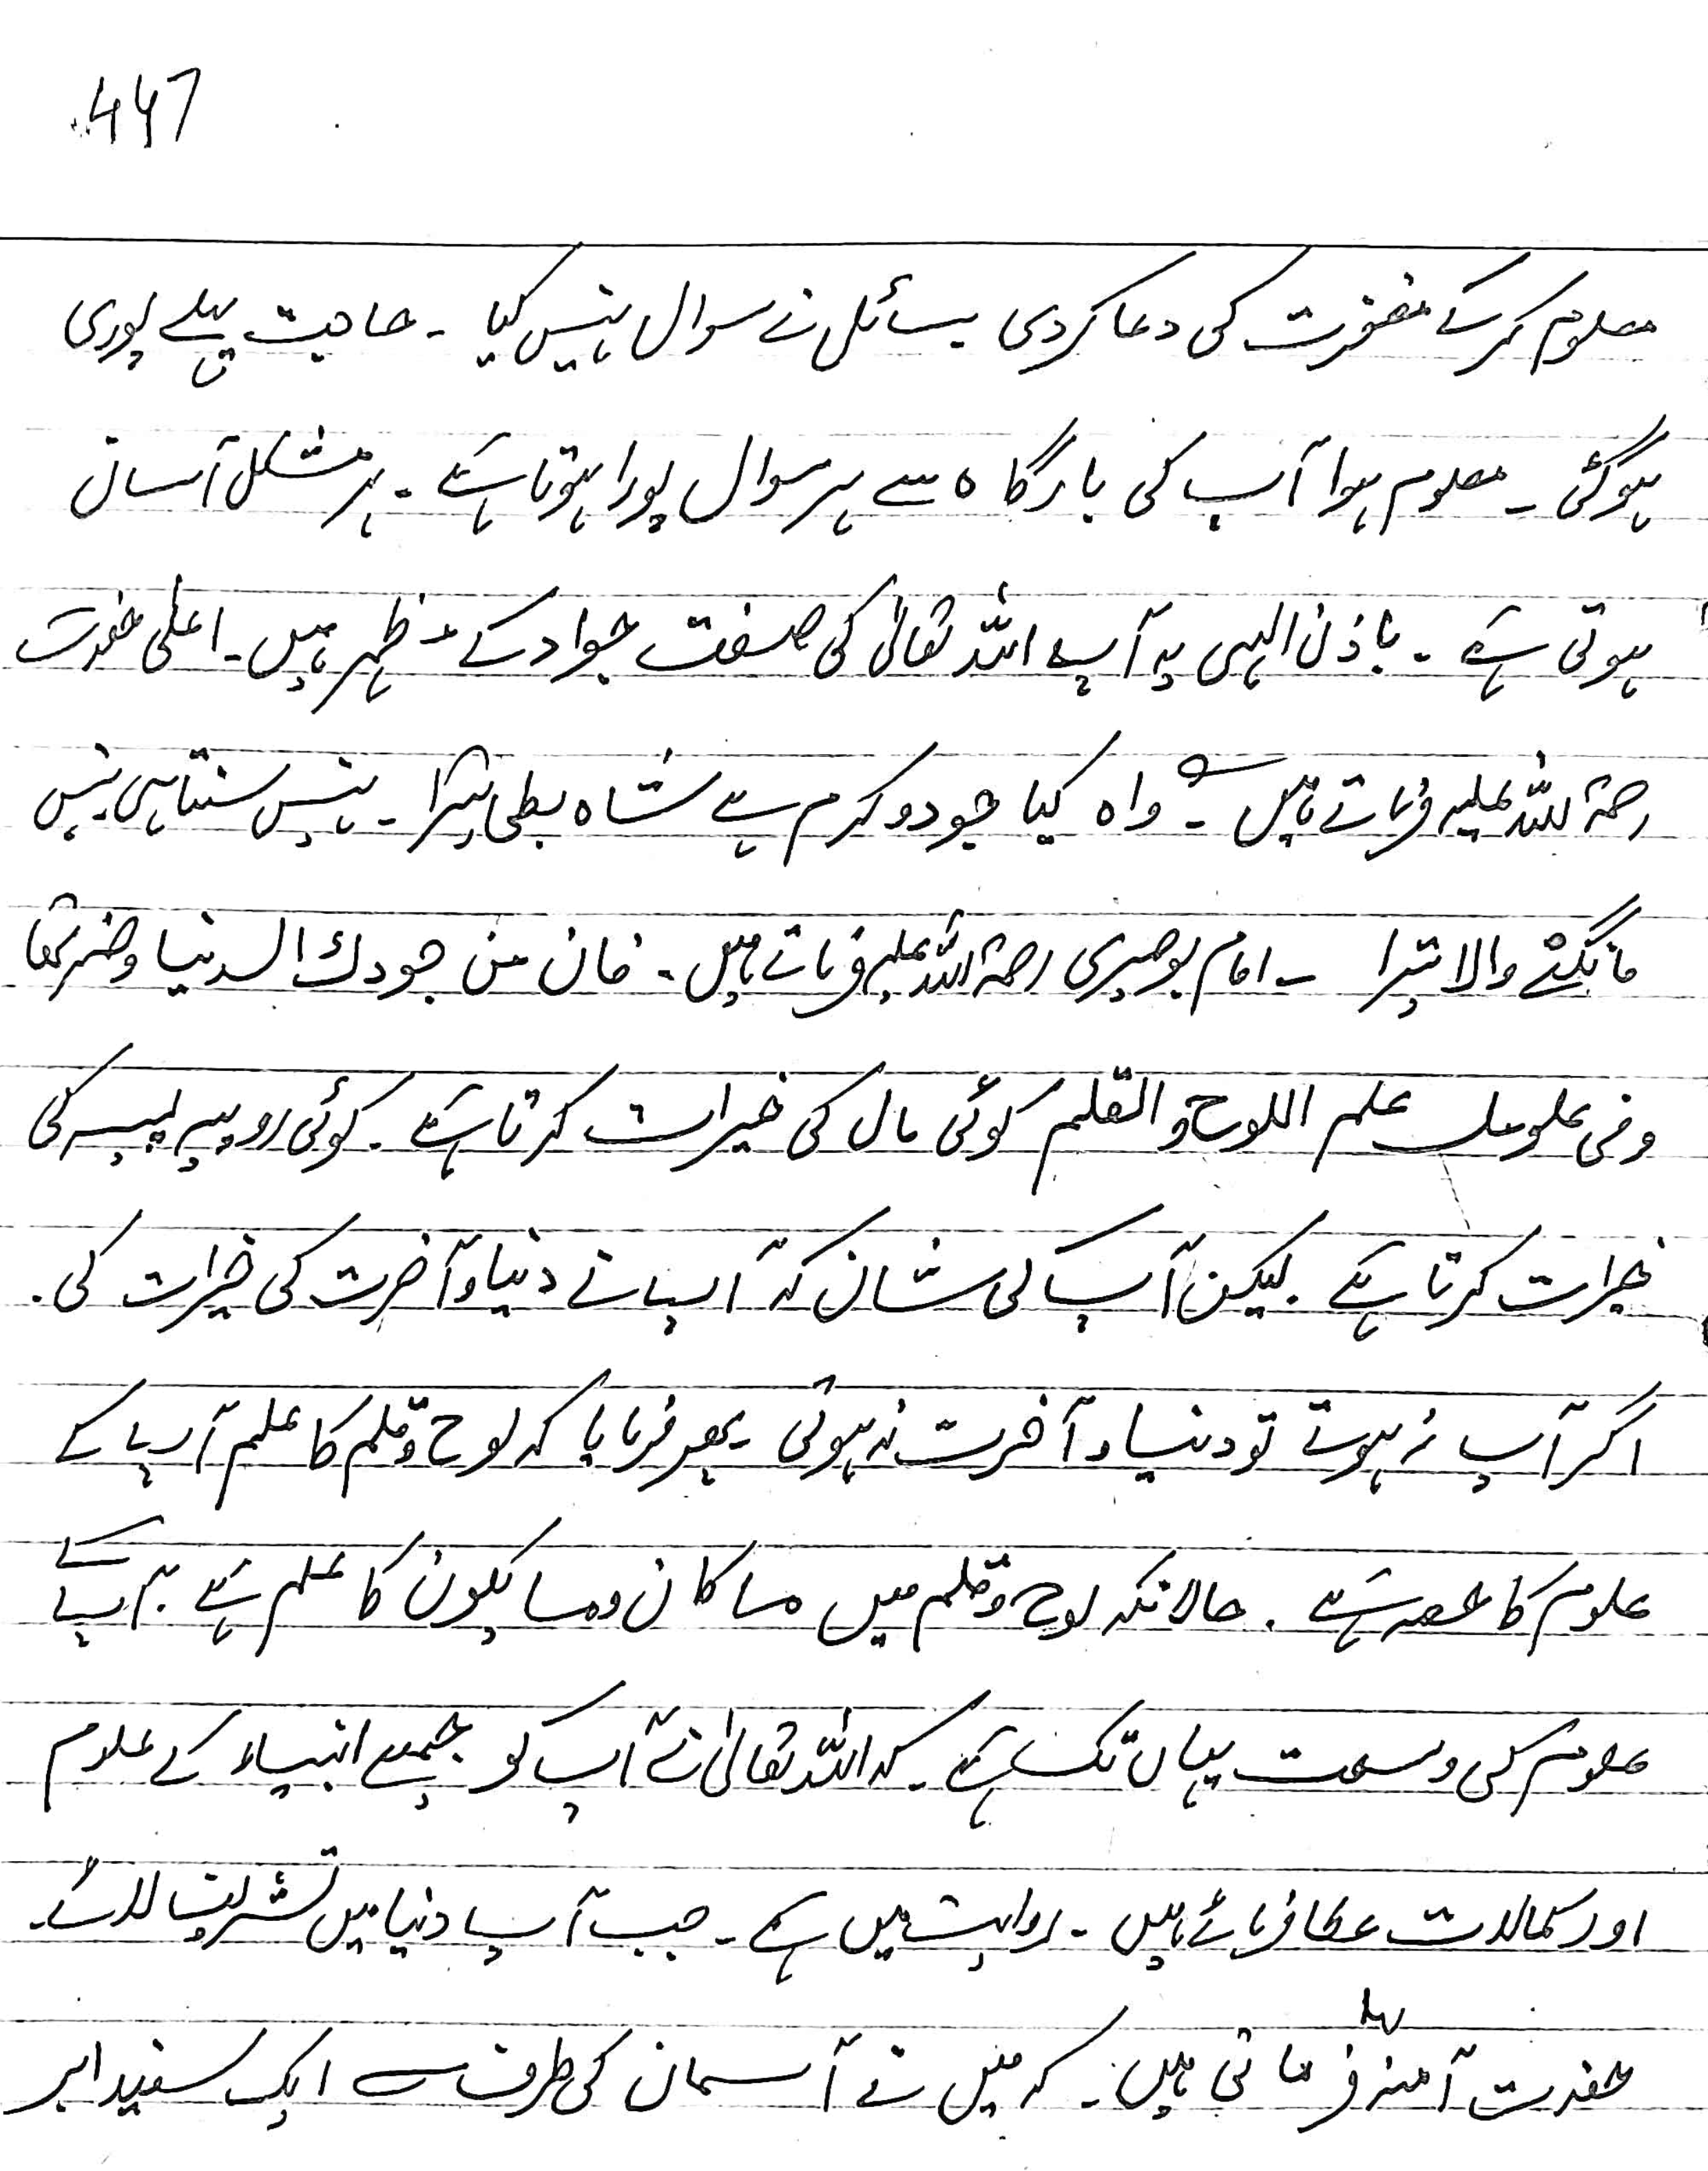 447
معلوم کرکے مغفرت کی دعا کردی سائل نے سوال نہیں کیا ۔ حاجت پہلے پوری
ہوگئی ۔ معلوم ہوا آپ کی بارگاہ سے ہر سوال پورا ہوتا ہے ۔ ہر مشکل آسان
ہوتی ہے ۔ باذن الہی یہ آپ اللہ تعالیٰ کی صفت جواد کے مظہر ہیں ۔ اعلی حضرت
رحمۃ اللہ علیہ فرماتے ہیں ۔ واہ کیا جود و کرم ہے شاہ بطحی تیرا ۔ نہیں سنتا ہی نہیں
مانگنے والا تیرا ۔ امام بوصیری رحمۃ اللہ علیہ فرماتے ہیں ۔ فان من جودك الدنیا وضرتھا
وفی علومك علم اللوح والقلم کوئی مال کی خیرات کرتا ہے ۔ کوئی روپیہ پیسہ کی
خیرات کرتا ہے ۔ لیکن آپ کی شان کہ آپ نے دنیا و آخرت کی خیرات کی ۔
اگر آپ نہ ہوتے تو دنیا و آخرت نہ ہوتی ۔ پھر فرمایا کہ لوح و قلم کا علم آپ کے
علوم کا حصہ ہے ۔ حالانکہ لوح و قلم میں ماکان وما یکون کا علم ہے ۔ آپ کے
علوم کی وسعت یہاں تک ہے ۔ کہ اللہ تعالیٰ نے آپ کو جمیع انبیاء کے علوم
اور کمالات عطا فرمائے ہیں ۔ روایت میں ہے ۔ جب آپ دنیا میں تشریف لائے ۔
حضرت آمنہ فرماتی ہیں ۔ کہ میں نے آسمان کی طرف سے ایک سفید ابر